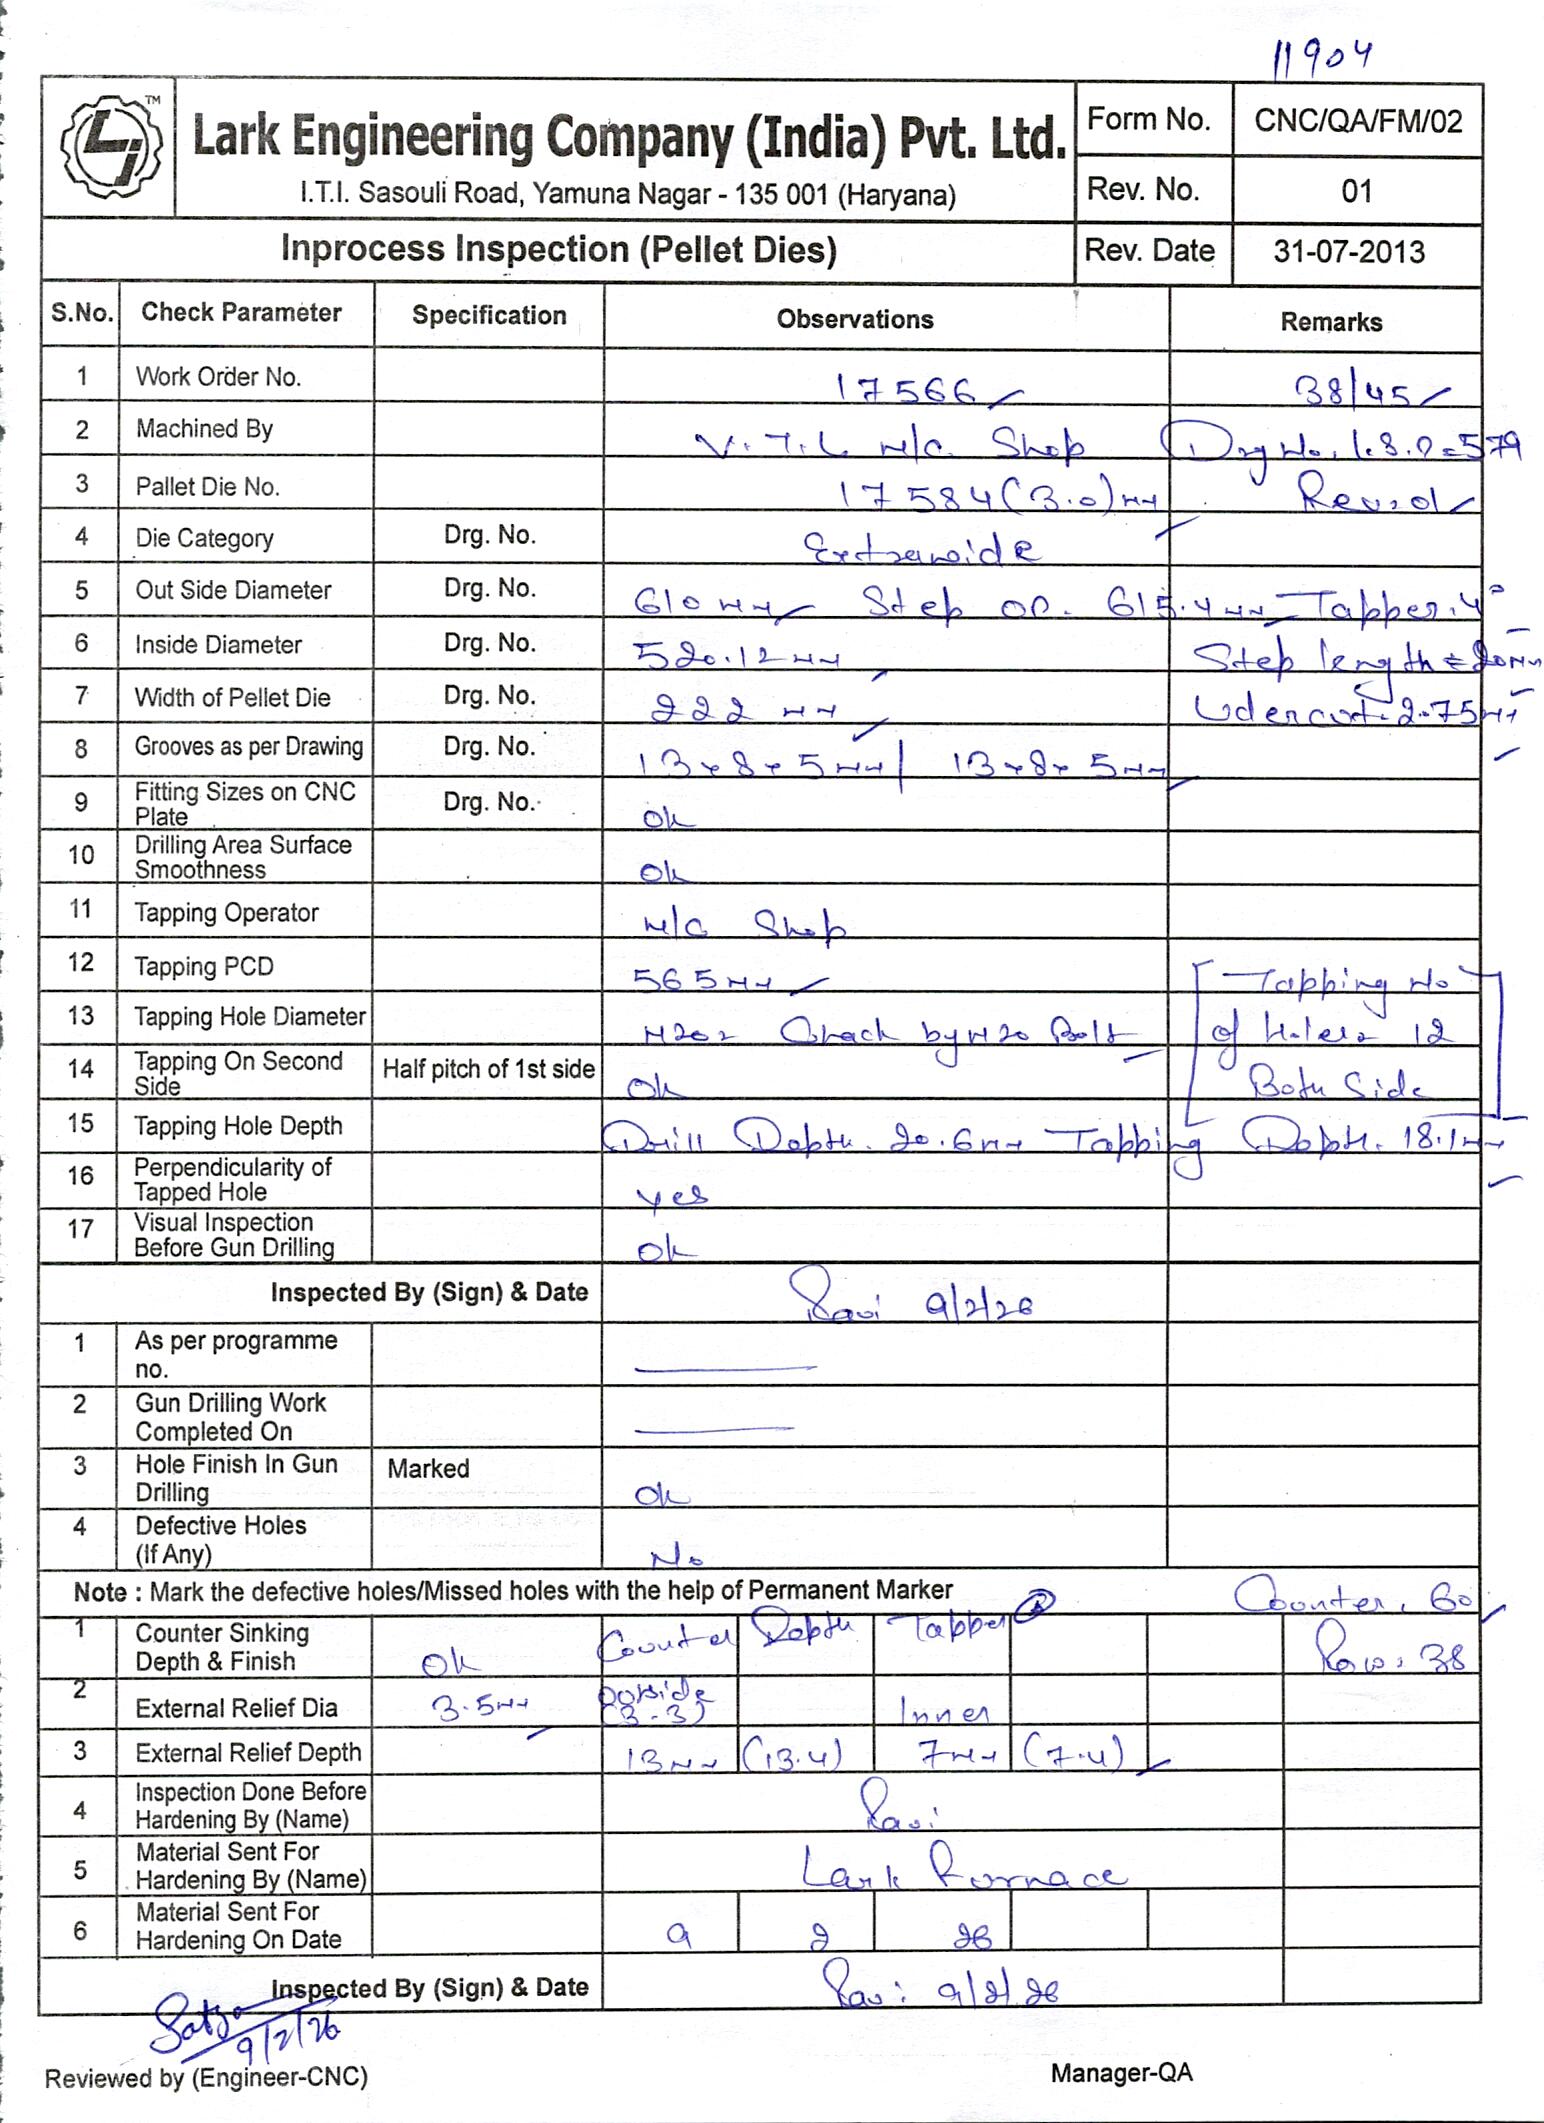 11904
TM
Lark Engineering Company (India) Pvt. Ltd.
I.T.I. Sasouli Road, Yamuna Nagar - 135 001 (Haryana)
Form No. CNC/QA/FM/02
Rev. No. 01
Inprocess Inspection (Pellet Dies) Rev. Date 31-07-2013
S.No. Check Parameter Specification Observations Remarks
1 Work Order No. 17566 38/45
2 Machined By V.T.L M/C Shop Drg No.
3 Pallet Die No. 17584 (3.0)mm Rev:01
4 Die Category Drg. No. Extrawide
5 Out Side Diameter Drg. No. 610mm Step OD. 615.4mm Tapper.4°
6 Inside Diameter Drg. No. 520.12mm Step length = 20mm
7 Width of Pellet Die Drg. No. 222 mm Udercut.2.75mm
8 Grooves as per Drawing Drg. No. 13x8x5mm | 13x8x5mm
9 Fitting Sizes on CNC Plate Drg. No. Ok
10 Drilling Area Surface Smoothness Ok
11 Tapping Operator M/C Shop
12 Tapping PCD 565mm Tapping No
13 Tapping Hole Diameter M20= Chack by M20 Bolt of Holes= 12
14 Tapping On Second Side Half pitch of 1st side Ok Both Side
15 Tapping Hole Depth Drill Depth. 20.6mm Tapping Depth. 18.1mm
16 Perpendicularity of Tapped Hole yes
17 Visual Inspection Before Gun Drilling Ok
Inspected By (Sign) & Date Ravi 9/2/26
1 As per programme no.
2 Gun Drilling Work Completed On
3 Hole Finish In Gun Drilling Marked Ok
4 Defective Holes (If Any) No
Note : Mark the defective holes/Missed holes with the help of Permanent Marker Counter. 60
1 Counter Sinking Depth & Finish Ok Counter Depth Tapper Row: 38
2 External Relief Dia 3.5mm outside (3.3) Inner
3 External Relief Depth 13mm (13.4) 7mm (7.4)
4 Inspection Done Before Hardening By (Name) Ravi
5 Material Sent For Hardening By (Name) Lark Furnace
6 Material Sent For Hardening On Date 9 2 26
Inspected By (Sign) & Date Ravi 9/2/26
9/2/26
Reviewed by (Engineer-CNC) Manager-QA